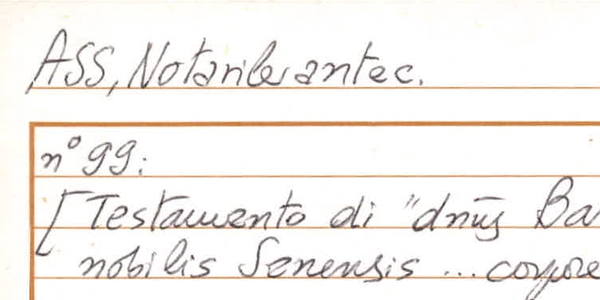 ASS, Notarile antec.
n° 99:
[Testamento di "dnūs Ba
nobilis Senensis ... corpore